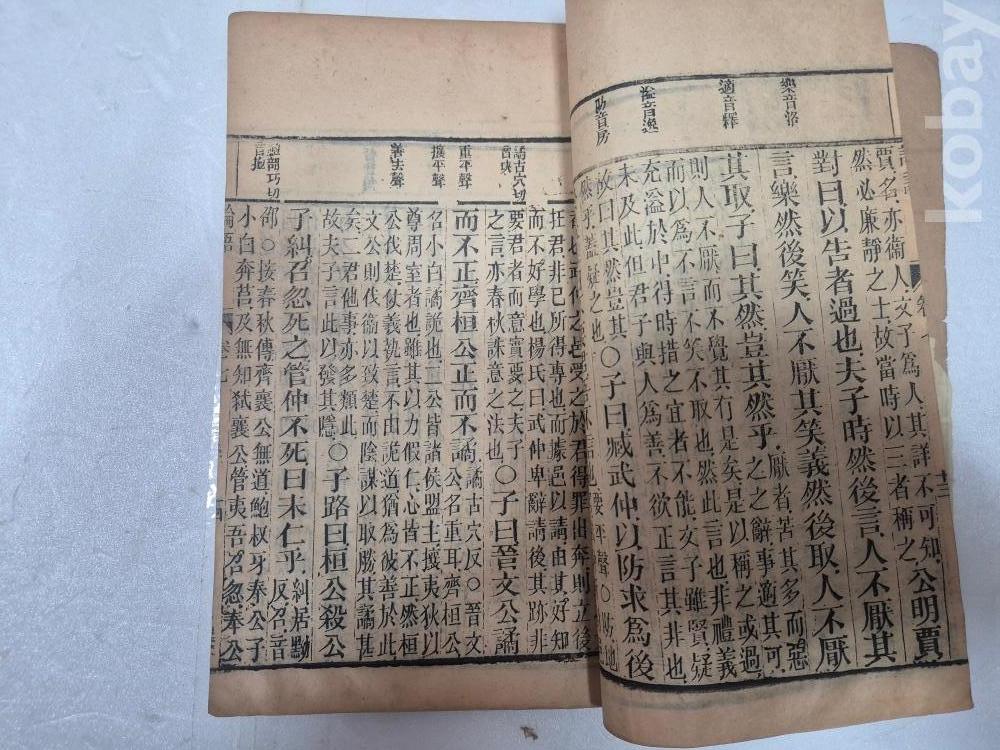 樂音洛
適音釋
賈名亦衞人文子爲人其詳不可知
然必廉靜之士故當時以三者稱之
公明賈
對曰以告者過也夫子時然後言人不厭其
言樂然後笑人不厭其笑義然後取人不厭
其取子曰其然豈其然乎
厭者苦其多而惡
之之辭事適其可
則人不厭而不覺其有是矣是以稱之或過
而以爲不言不笑不取也然此言也非禮義
充溢於中得時措之宜者不能文子雖賢疑
未及此但君子與人爲善不欲正言其非也
故曰其然豈其
然乎蓋疑之也
〇子曰臧武仲以防求爲後
要平聲〇防地
譎古穴切
重平聲
攘平聲
武仲之邑受之於君得罪出奔則立後
在君非已所得專也而據邑以請由其好知
而不好學也楊氏曰武仲卑辭請後其跡非
要君者而意實要之夫子
之言亦春秋誅意之法也
〇子曰晉文公譎
而不正齊桓公正而不譎
譎古穴反〇晉文
公名重耳齊桓公
名小白譎詭也二公皆諸侯盟主攘夷狄以
尊周室者也雖其以力假仁心皆不正然桓
公伐楚仗義執言不由詭道猶爲彼善於此
文公則伐衞以致楚而陰謀以取勝其譎甚
矣二君他事亦多類此
故夫子言此以發其隱
〇子路曰桓公殺公
子糾召忽死之管仲不死曰未仁乎
糾居黝
反召音
邵〇按春秋傳齊襄公無道鮑叔牙奉公子
小白奔莒及無知弒襄公管夷吾召忽奉公
論語
kobay